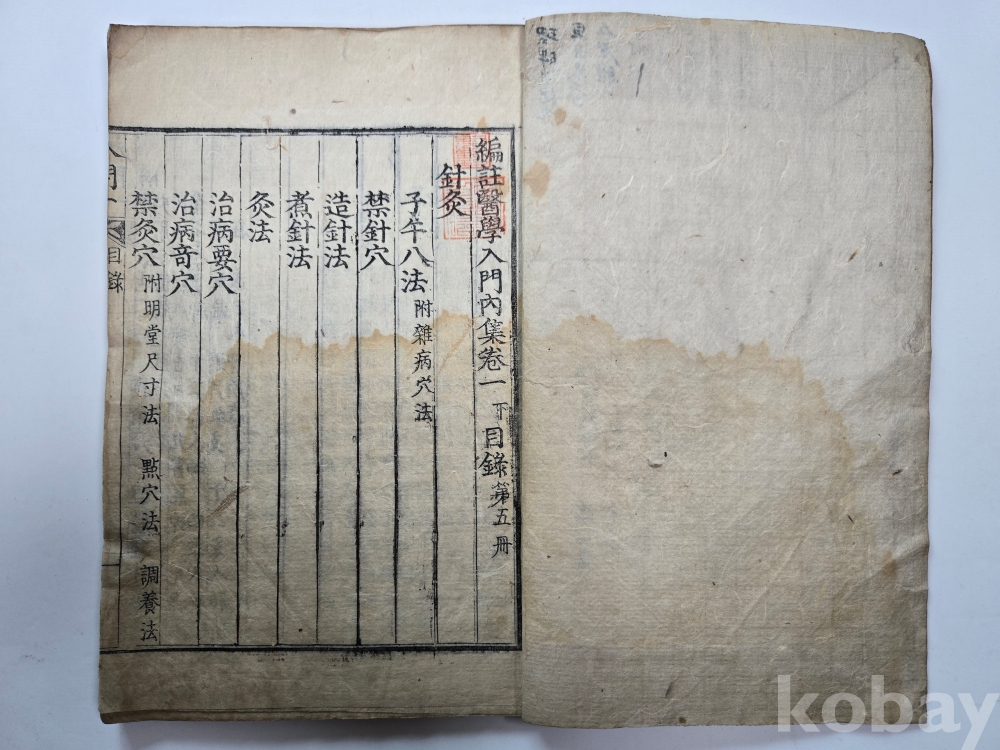 編註醫學入門內集卷一 下 目錄 第五冊
針灸
子午八法 附雜病穴法
禁針穴
造針法
煮針法
灸法
治病要穴
治病奇穴
禁灸穴 附明堂尺寸法 點穴法 調養法
入門 目錄
kobay